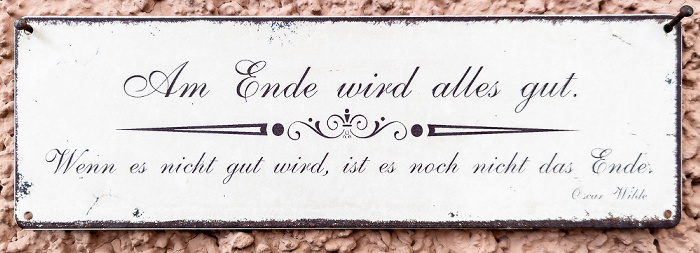 Am Ende wird alles gut.
Wenn es nicht gut wird, ist es noch nicht das Ende.
Oscar Wilde